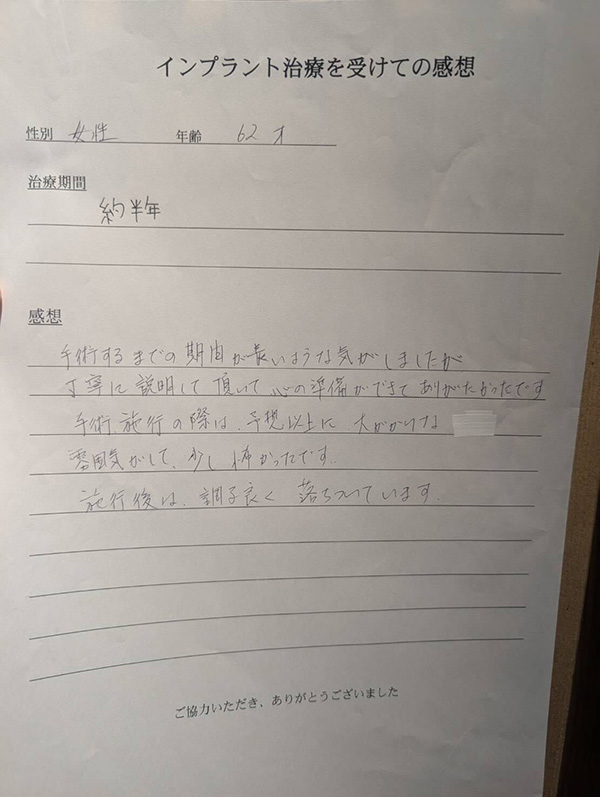 インプラント治療を受けての感想
性別 女性 年齢 62才
治療期間
約半年
感想
手術するまでの期間が長いような気がしましたが
丁寧に説明して頂いて心の準備ができてありがたかったです
手術施行の際は、予想以上に大がかりな
雰囲気がして、少し怖かったです。
施行後は、調子良く落ちついています。
ご協力いただき、ありがとうございました